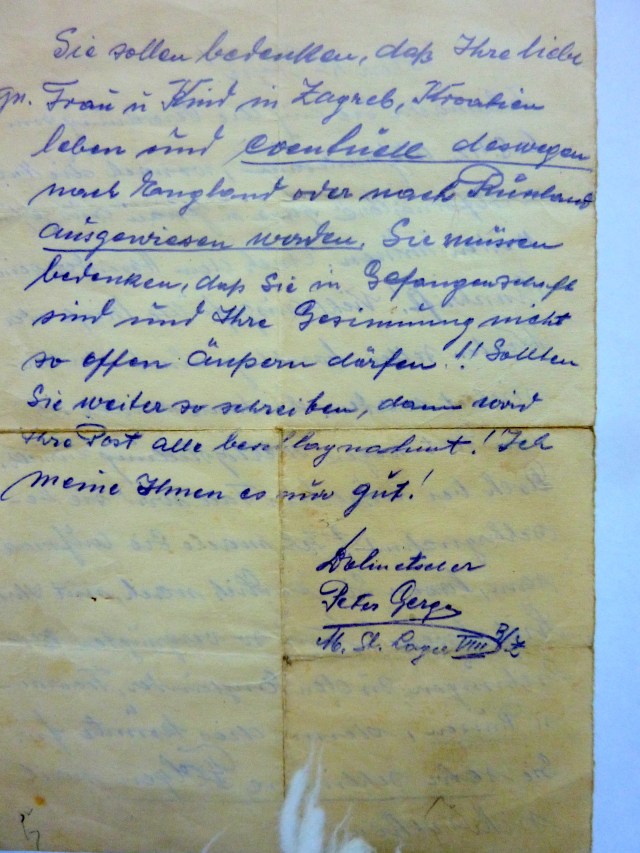 Sie sollen bedenken, daß Ihre liebe
gn. Frau u Kind in Zagreb, Kroatien
leben und eventuell deswegen
nach England oder nach Russland
ausgewiesen werden. Sie müssen
bedenken, daß Sie in Gefangenschaft
sind und Ihre Gesinnung nicht
so offen äußern dürfen!! Sollten
Sie weiter so schreiben, dann wird
Ihre Post alle beschlagnahmt! Ich
meine Ihnen es nur gut!
Dolmetscher
Peter
M. St. Lager VIII B/Z